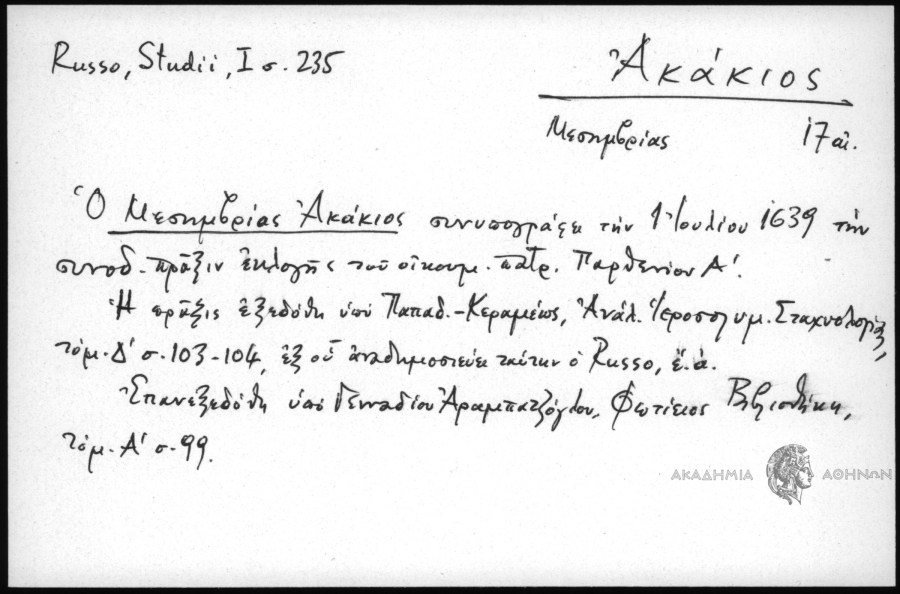 Russo, Studii, I σ. 235
Ἀκάκιος
Μεσημβρίας 17 αἰ.
Ὁ Μεσημβρίας Ἀκάκιος συνυπογράφει τὴν 1 Ἰουλίου 1639 τὴν
συνοδ. πρᾶξιν ἐκλογῆς τοῦ οἰκουμ. πατρ. Παρθενίου Α'.
Ἡ πρᾶξις ἐξεδόθη ὑπὸ Παπαδ.-Κεραμέως, Ἀνάλ. Ἱεροσολυμ. Σταχυολογίας,
τόμ. Δ' σ. 103-104, ἐξ οὗ ἀναδημοσιεύει ταύτην ὁ Russo, ἔ.ἀ.
Ἐπανεξεδόθη ὑπὸ Γενναδίου Ἀραμπατζόγλου, Φωτίειος Βιβλιοθήκη,
τόμ. Α' σ. 99.
ΑΚΑΔΗΜΙΑ ΑΘΗΝΩΝ